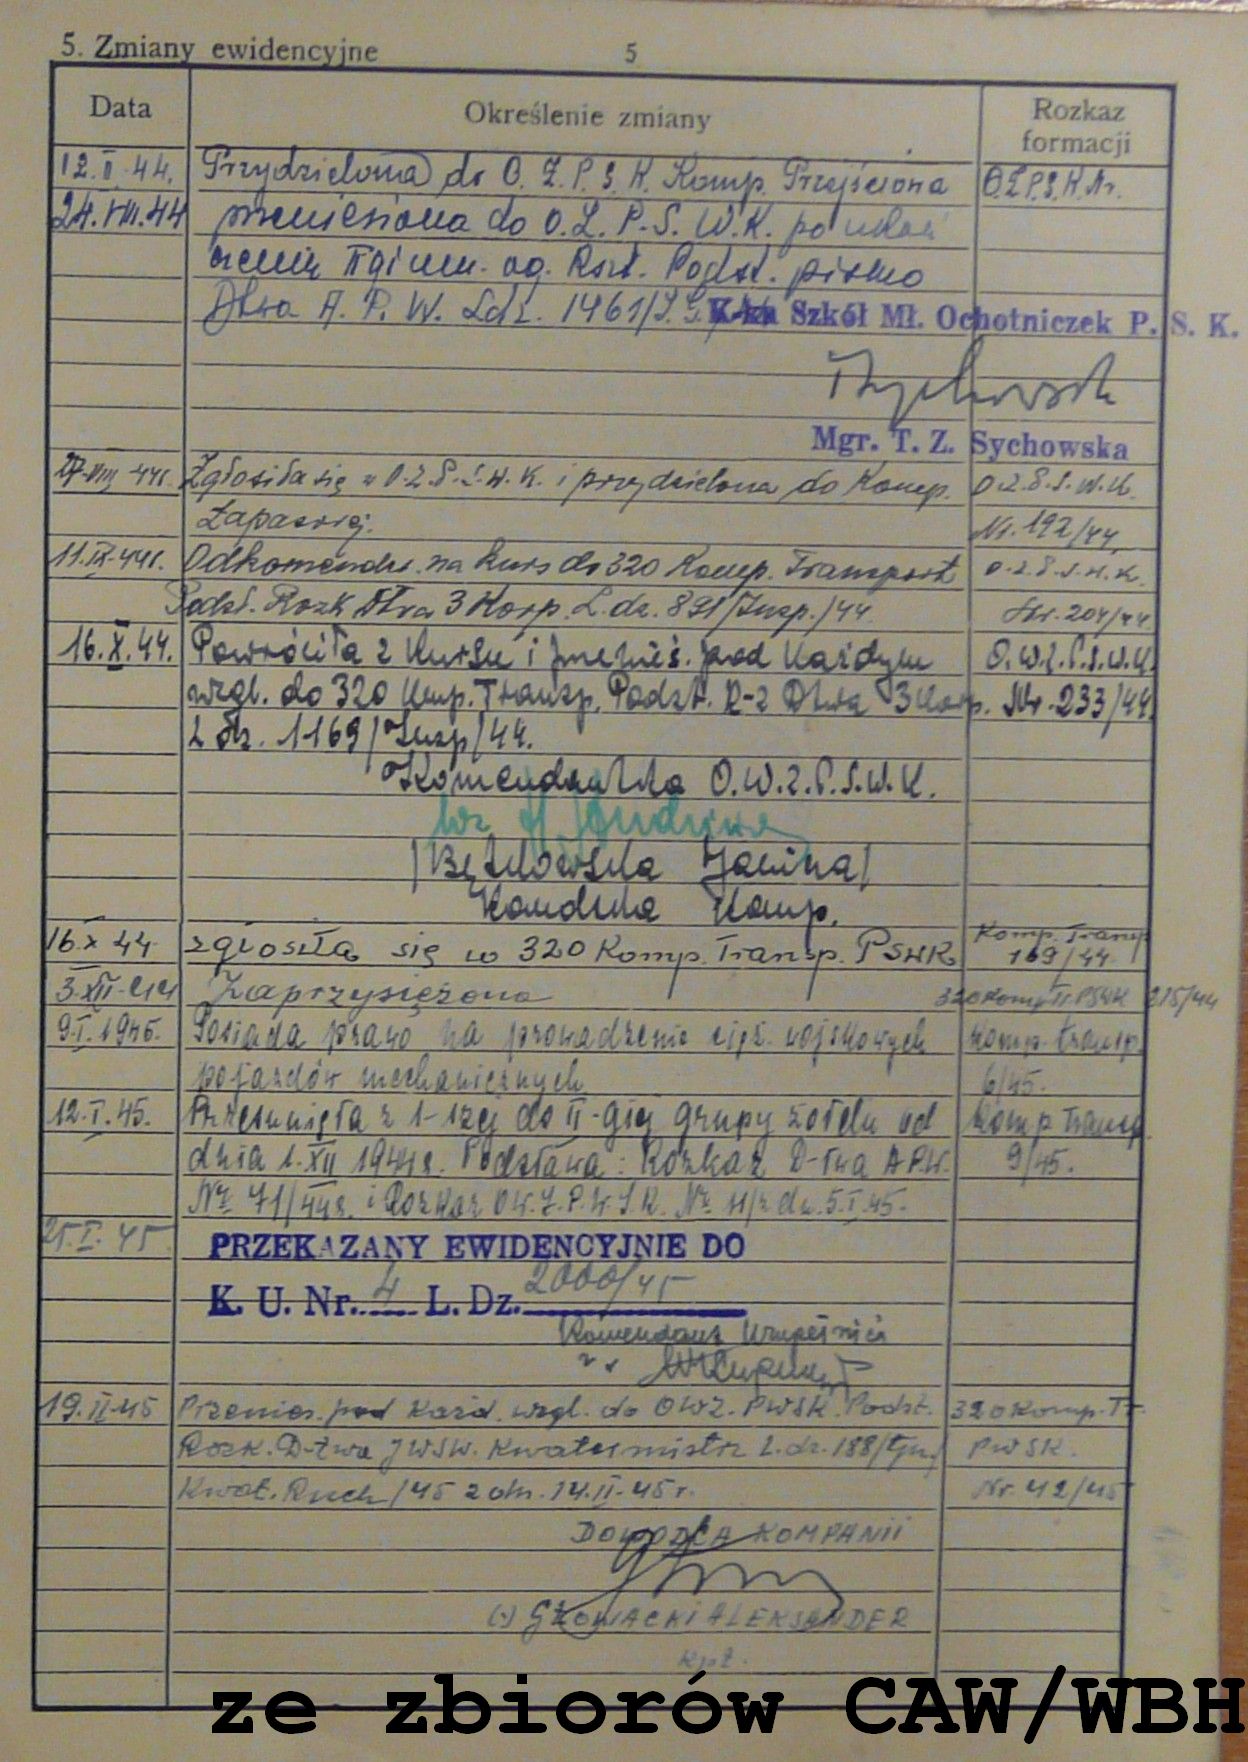 5. Zmiany ewidencyjne 5
Data Określenie zmiany Rozkaz formacji
12.II.44. Przydzielona do O.Z.P.S.K. Komp. Przejściona O.Z.P.S.K. Nr.
24.VIII.44 przeniesiona do O.Z.P.S.W.K. po ukoń
czeniu II gimn. og. Rozk. Podst. pismo
Dtwa A.P.W. Ldz. 1461/
K-ka Szkół Mł. Ochotniczek P. S. K.
Mgr. T. Z. Sychowska
27.VIII 44r. Zgłosiła się w O.Z.P.S.W.K. i przydzielona do Komp. O.Z.P.S.W.K.
Zapasowej. Nr. 192/44.
11.IX.44r. Odkomender. na kurs do 320 Komp. Transport O.Z.P.S.W.K.
Podst. Rozk Dtwa 3 Korp. L.dz. 891/Insp./44. Nr. 204/44
16.X.44. Powróciła z Kursu i przenieś. pod każdym O.W.Z.P.S.W.K.
wzgl. do 320 Kmp. Transp. Podst. R-z Dtwa 3 Korp. Nr. 233/44.
L dz. 1169/Insp/44.
Komendantka O.W.Z.P.S.W.K.
wz
/Bętkowska Janina/
Komdtka Komp.
16.X 44 zgłosiła się w 320 Komp. Transp. PSWK Komp. Transp
169/44
3.XII-44 Zaprzysiężona 320 Komp Tr. PSWK 215/44
9.I.1945. Posiada prawo na prowadzenie cięż. wojskowych Komp. transp.
pojazdów mechanicznych 6/45.
12.I.45. Przesunięta z 1-szej do II-giej grupy żołdu od Komp Transp.
dnia 1.XII 1944r. Podstawa: Rozkaz D-twa APW. 9/45.
Nr 71/44r. i Rozkaz OW.Z.P.W.S.K. Nr z dn. 5.I.45.
25.I.45 PRZEKAZANY EWIDENCYJNIE DO
K. U. Nr. 4 L. Dz. 2000/45
Komendant Uzupełnień
19.II.45 Przenies. pod każd. wzgl. do OWZ. PWSK. Podst. 320 Komp. Tr.
Rozk. D-twa JWSW. Kwatermistrz L.dz. 188/tjn/ PWSK.
Kwat. Ruch/45 z dn. 14.II-45 r. Nr. 42/45
DOWÓDCA KOMPANII
(-) GŁOWACKI ALEKSANDER
kpt.
ze zbiorów CAW/WBH